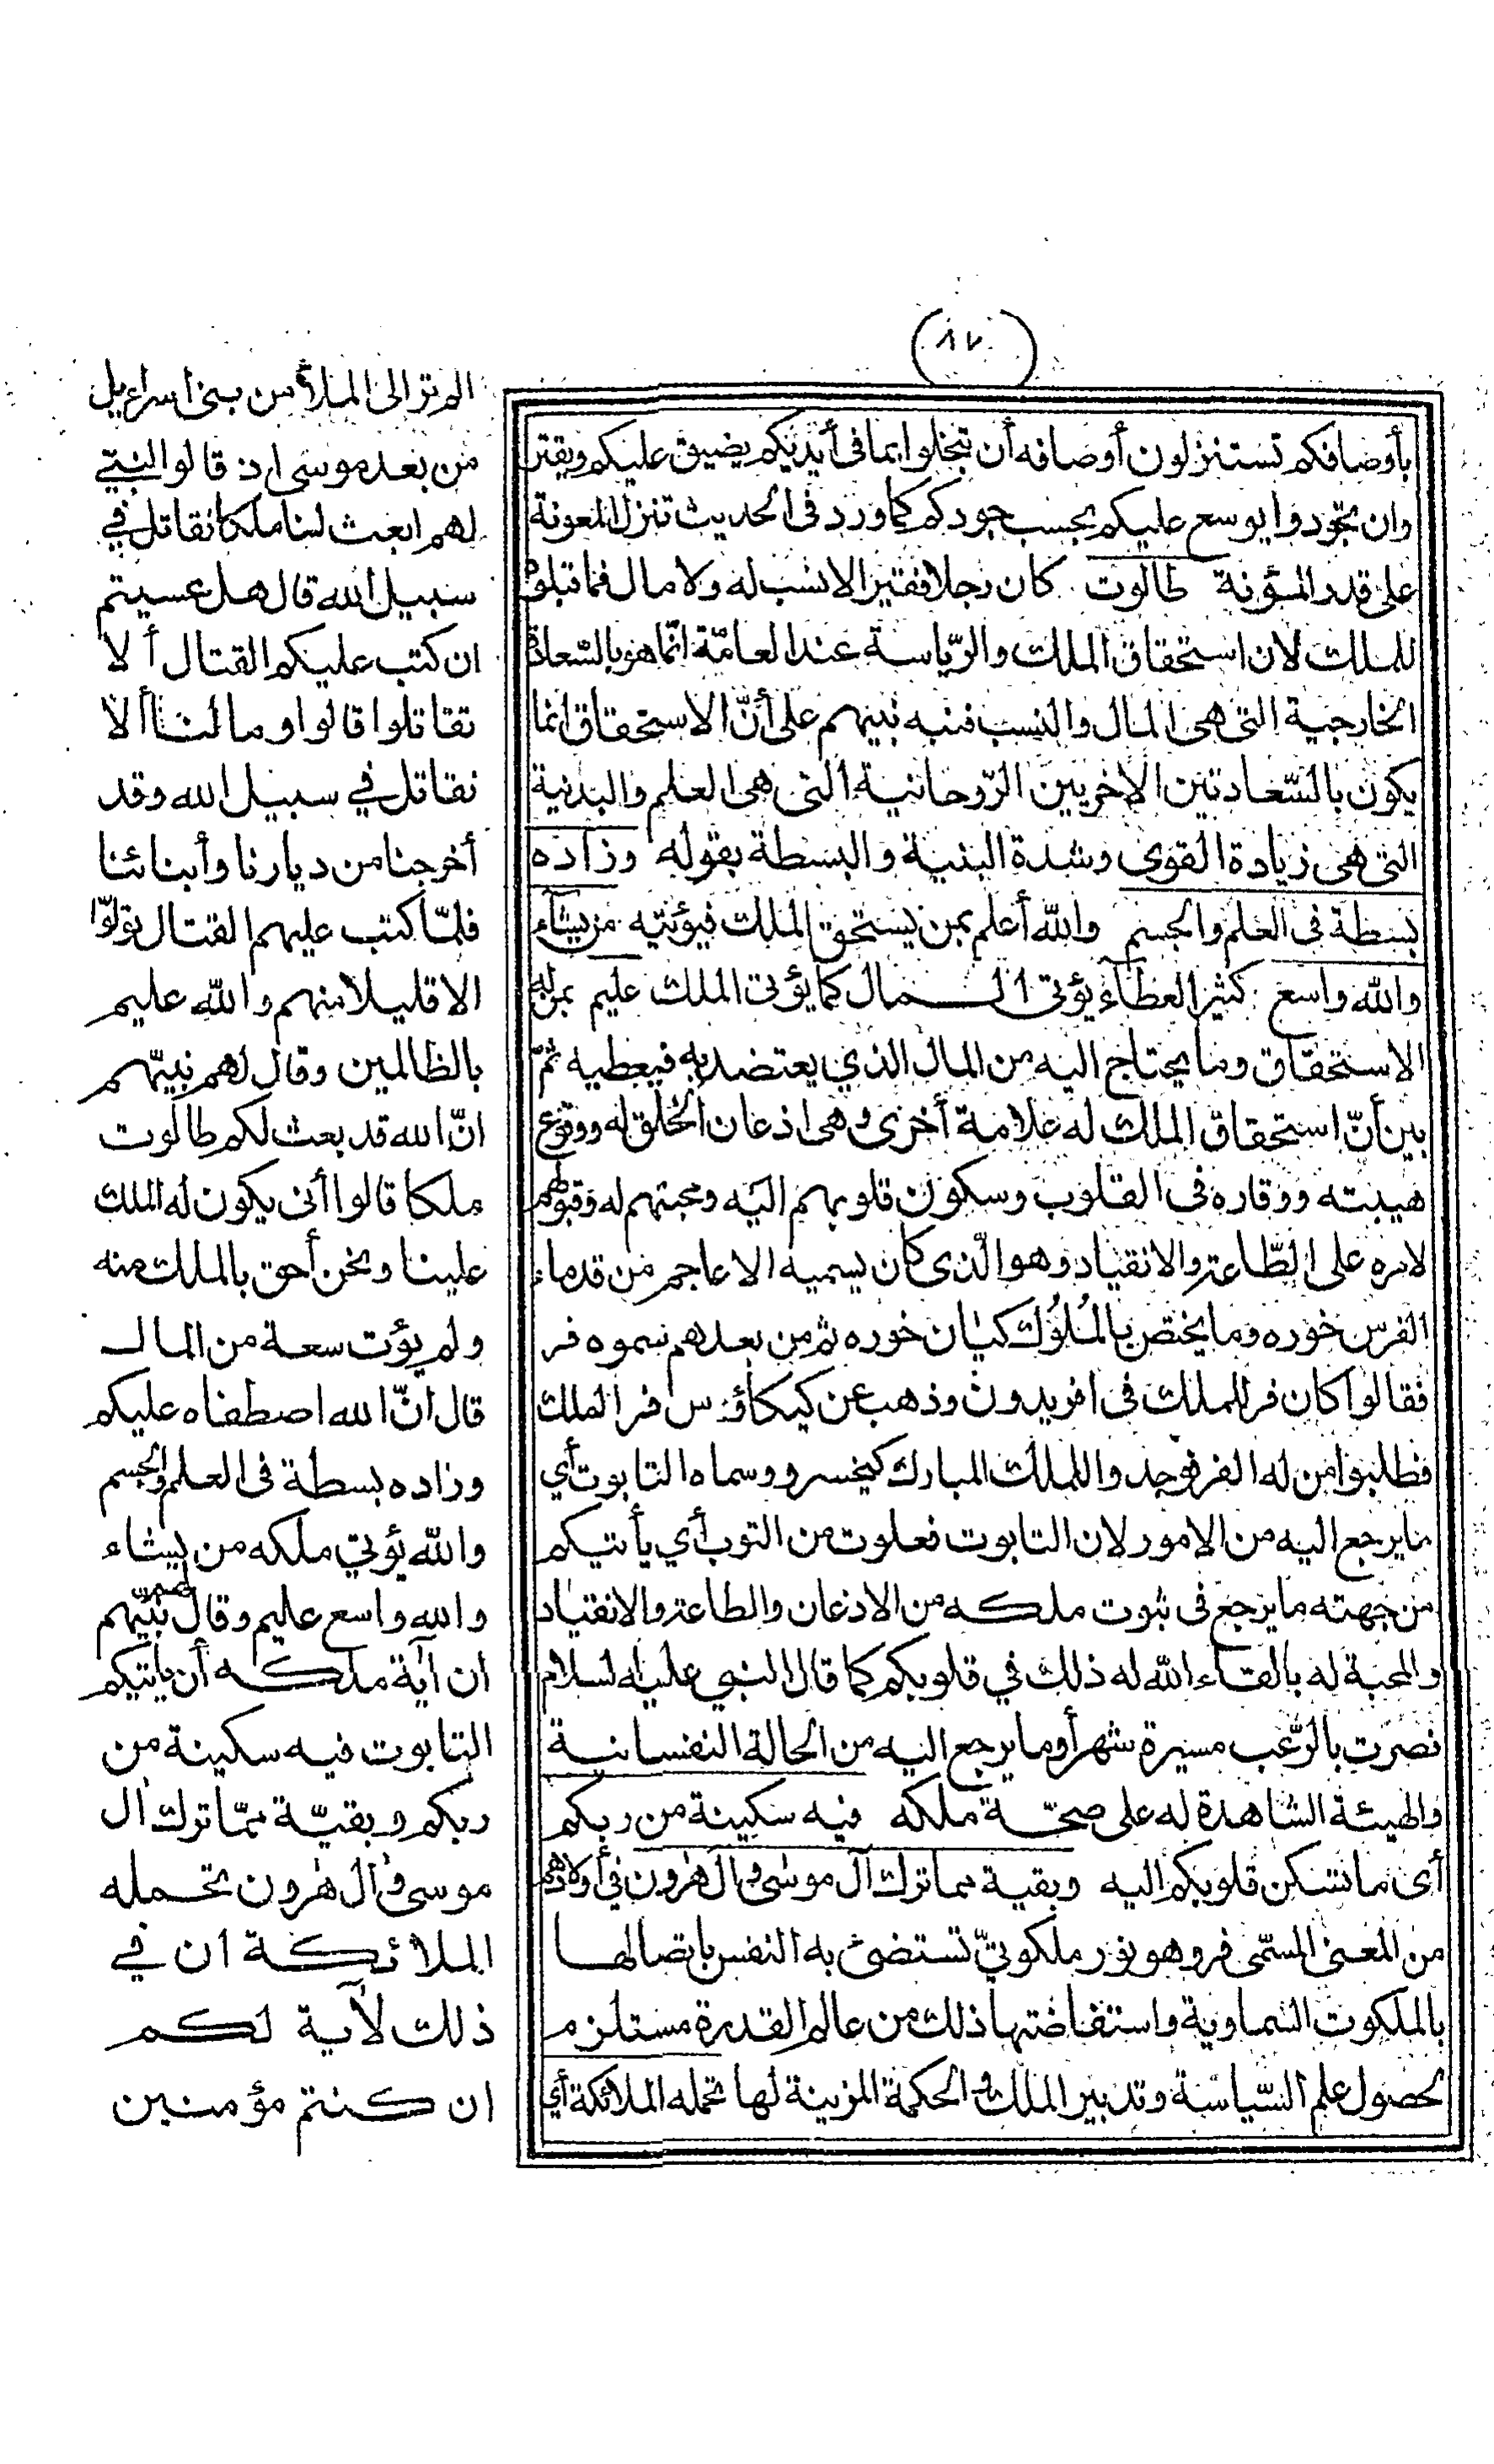 (٨٧)
بأوصافكم تستنزلون أوصافه أن تبخلوا بما في أيديكم يضيق عليكم ويقتر
وان تجودوا يوسع عليكم بحسب جودكم كما ورد في الحديث تنزل المعونة
على قدر المؤنة طالوت كان رجلا فقيرا لا نسب له ولا مال فما قبلوه
للملك لان استحقاق الملك والرّياسة عند العامّة انّما هو بالسّعادة
الخارجية التي هي المال والنسب فنبه نبيهم على أنّ الاستحقاق انما
يكون بالسّعادتين الاخريين الرّوحانية التي هي العلم والبدنية
التي هي زيادة القوى وشدة البنية والبسطة بقوله وزاده
بسطة في العلم والجسم والله أعلم بمن يستحق الملك فيؤتيه من يشاء
والله واسع كثير العطاء يؤتي المال كما يؤتي الملك عليم بمن له
الاستحقاق وما يحتاج اليه من المال الذي يعتضد به فيعطيه ثمّ
بين أنّ استحقاق الملك له علامة أخرى وهي اذعان الخلق له ووقوع
هيبته ووقاره في القلوب وسكون قلوبهم اليه ومحبتهم له وقبولهم
لامره على الطّاعة والانقياد وهو الّذي كان يسميه الاعاجم من قدماء
الفرس خوره وما يختص بالملوك كيان خوره ثم من بعدهم سموه فر
فقالوا كان فر الملك في افريدون وذهب عن كيكاؤس فر الملك
فطلبوا من له الفر فوجدوا الملك المبارك كيخسرو وسماه التابوت أي
ما يرجع اليه من الامور لان التابوت فعلوت من التوب أي يأتيكم
من جهته ما يرجع في ثبوت ملكه من الاذعان والطاعة والانقياد
والمحبة له بالقاء الله له ذلك في قلوبكم كما قال النبي عليه السلام
نصرت بالرّعب مسيرة شهر أو ما يرجع اليه من الحالة النفسانية
والهيئة الشاهدة له على صحّة ملكه فيه سكينة من ربكم
أي ما تسكن قلوبكم اليه وبقية مما ترك آل موسى وآل هرون في أولادهم
من المعنى المسمّى فر وهو نور ملكوتيّ تستضئ به النفس باتصالها
بالملكوت السماوية واستفاضتها ذلك من عالم القدرة مستلزم
لحصول علم السّياسة وتدبير الملك والحكمة المزينة لها تحمله الملائكة أي
الم تر الى الملأ من بنى اسراءيل
من بعد موسى اذ قالوا لنبيّ
لهم ابعث لنا ملكا نقاتل في
سبيل الله قال هل عسيتم
ان كتب عليكم القتال ألا
تقاتلوا قالوا وما لنا ألا
نقاتل في سبيل الله وقد
أخرجنا من ديارنا وأبنائنا
فلمّا كتب عليهم القتال تولّوا
الا قليلا منهم والله عليم
بالظالمين وقال لهم نبيّهم
انّ الله قد بعث لكم طالوت
ملكا قالوا أنى يكون له الملك
علينا ونحن أحق بالملك منه
ولم يؤت سعة من المال
قال انّ الله اصطفاه عليكم
وزاده بسطة في العلم والجسم
والله يؤتي ملكه من يشاء
والله واسع عليم وقال لهم نبيّهم
ان آية ملكه أن يأتيكم
التابوت فيه سكينة من
ربكم وبقيّة ممّا ترك آل
موسى وآل هرون تحمله
الملائكة ان في
ذلك لآية لكم
ان كنتم مؤمنين